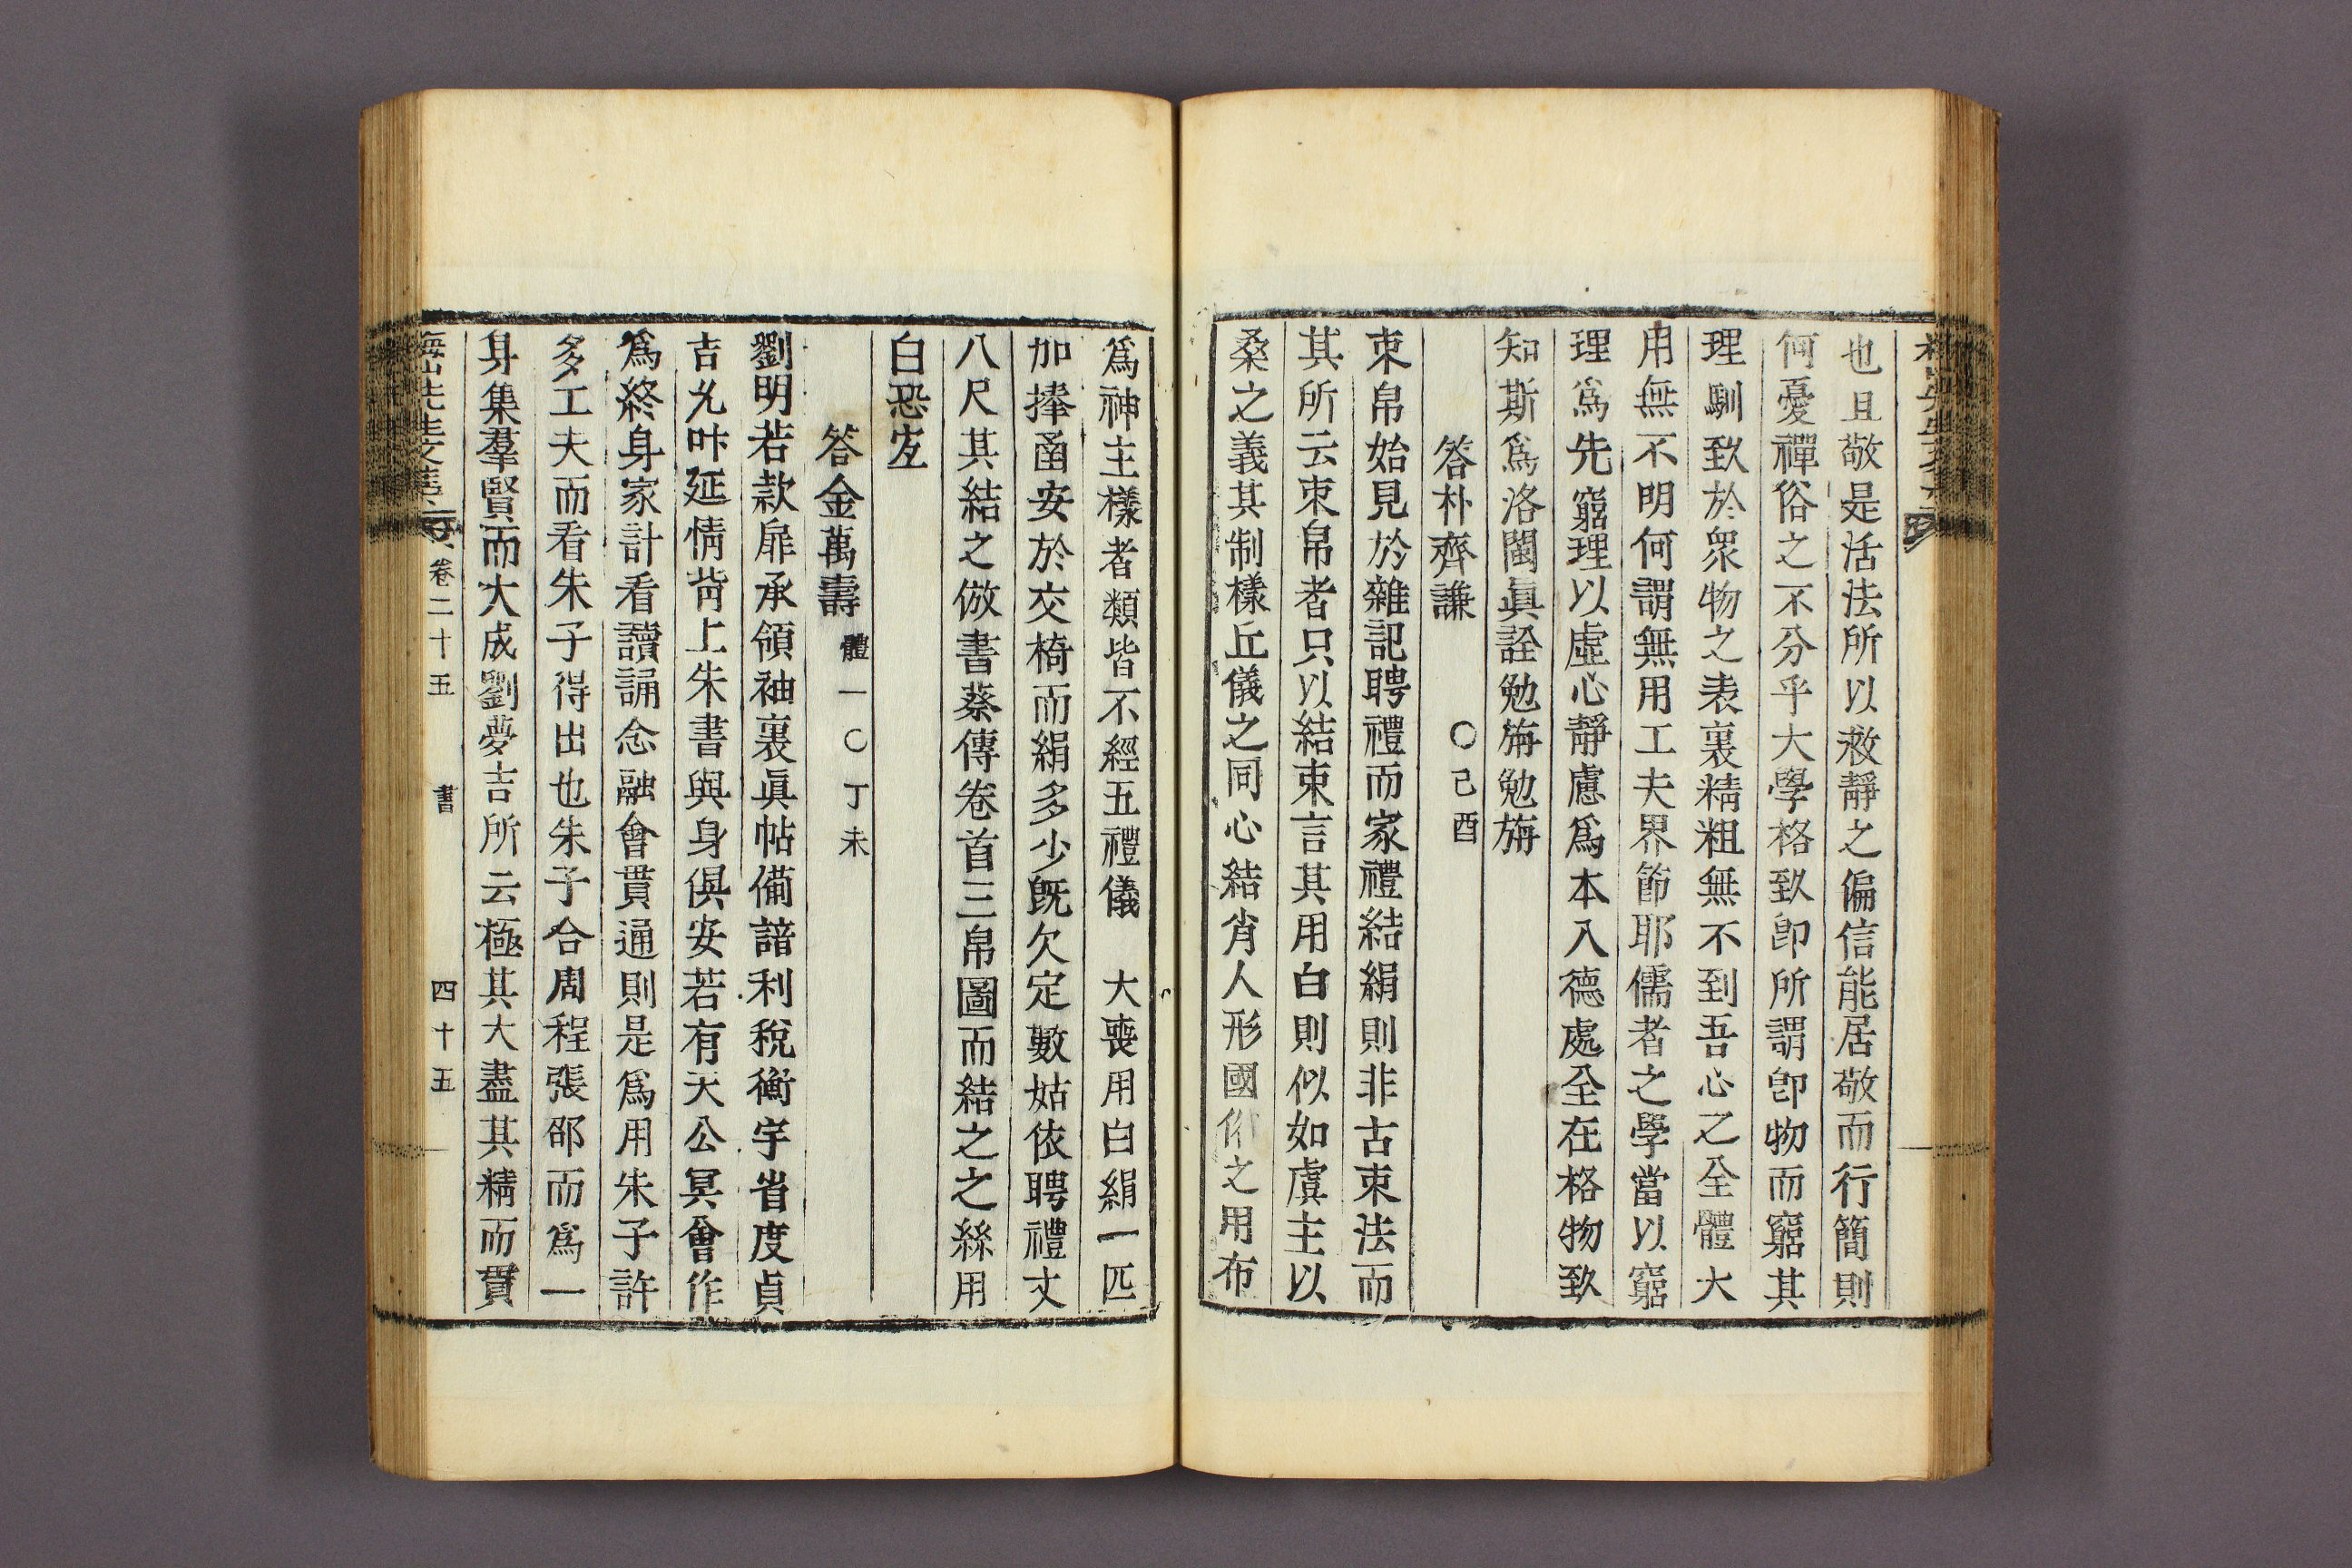 也且敬是活法所以救靜之偏信能居敬而行簡則
何憂禪俗之不分乎大學格致卽所謂卽物而窮其
理馴致於衆物之表裏精粗無不到吾心之全體大
用無不明何謂無用工夫界節耶儒者之學當以窮
理爲先窮理以虛心靜慮爲本入德處全在格物致
知斯爲洛閩眞詮勉旃勉旃
答朴齊謙 ○己酉
束帛始見於雜記聘禮而家禮結絹則非古束法而
其所云束帛者只以結束言其用白則似如虞主以
桑之義其制樣丘儀之同心結肖人形國俗之用布
爲神主樣者類皆不經五禮儀 大喪用白絹一匹
加捧凾安於交椅而絹多少旣欠定數姑依聘禮丈
八尺其結之倣書蔡傳卷首三帛圖而結之之絲用
白恐宜
答金萬壽 體一○丁未
劉明若款扉承領袖裏眞帖備諳利稅衡宇省度貞
吉允叶延情背上朱書與身俱安若有天公冥會作
爲終身家計看讀誦念融會貫通則是爲用朱子許
多工夫而看朱子得出也朱子合周程張邵而爲一
身集羣賢而大成劉夢吉所云極其大盡其精而貫
先生文集 卷二十五 書 四十五